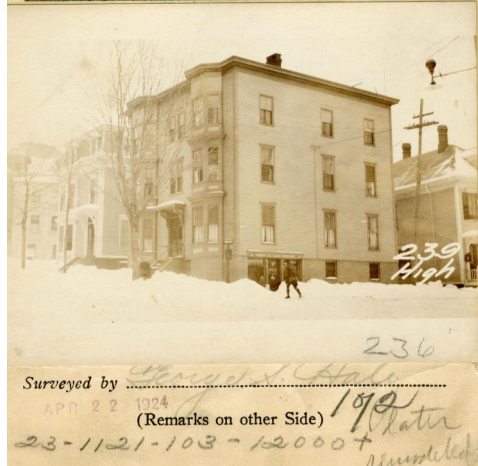 239
High
236
Surveyed by George S. Hale
APR 22 1924
(Remarks on other Side) 172
later
23-1121-103-12000+
remodelled